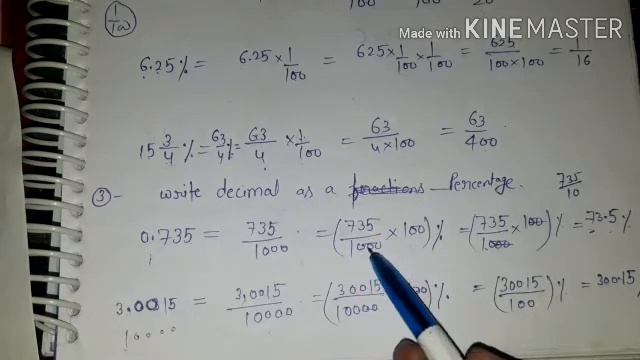 Made with KINEMASTER
1/100 100 100 20
6.25% = 6.25 × 1/100 = 625 × 1/100 × 1/100 = 625/100×100 = 1/16
15 3/4 % = 63/4 % = 63/4 × 1/100 = 63/4×100 = 63/400
③- write decimal as a fractions Percentage. 735/10
0.735 = 735/1000 = (735/1000 × 100)% = (735/1000 × 100)% = 73.5%
3.0015 = 3,0015/10000 = (30015/10000 00)% = (30015/100)% = 300.15
10000